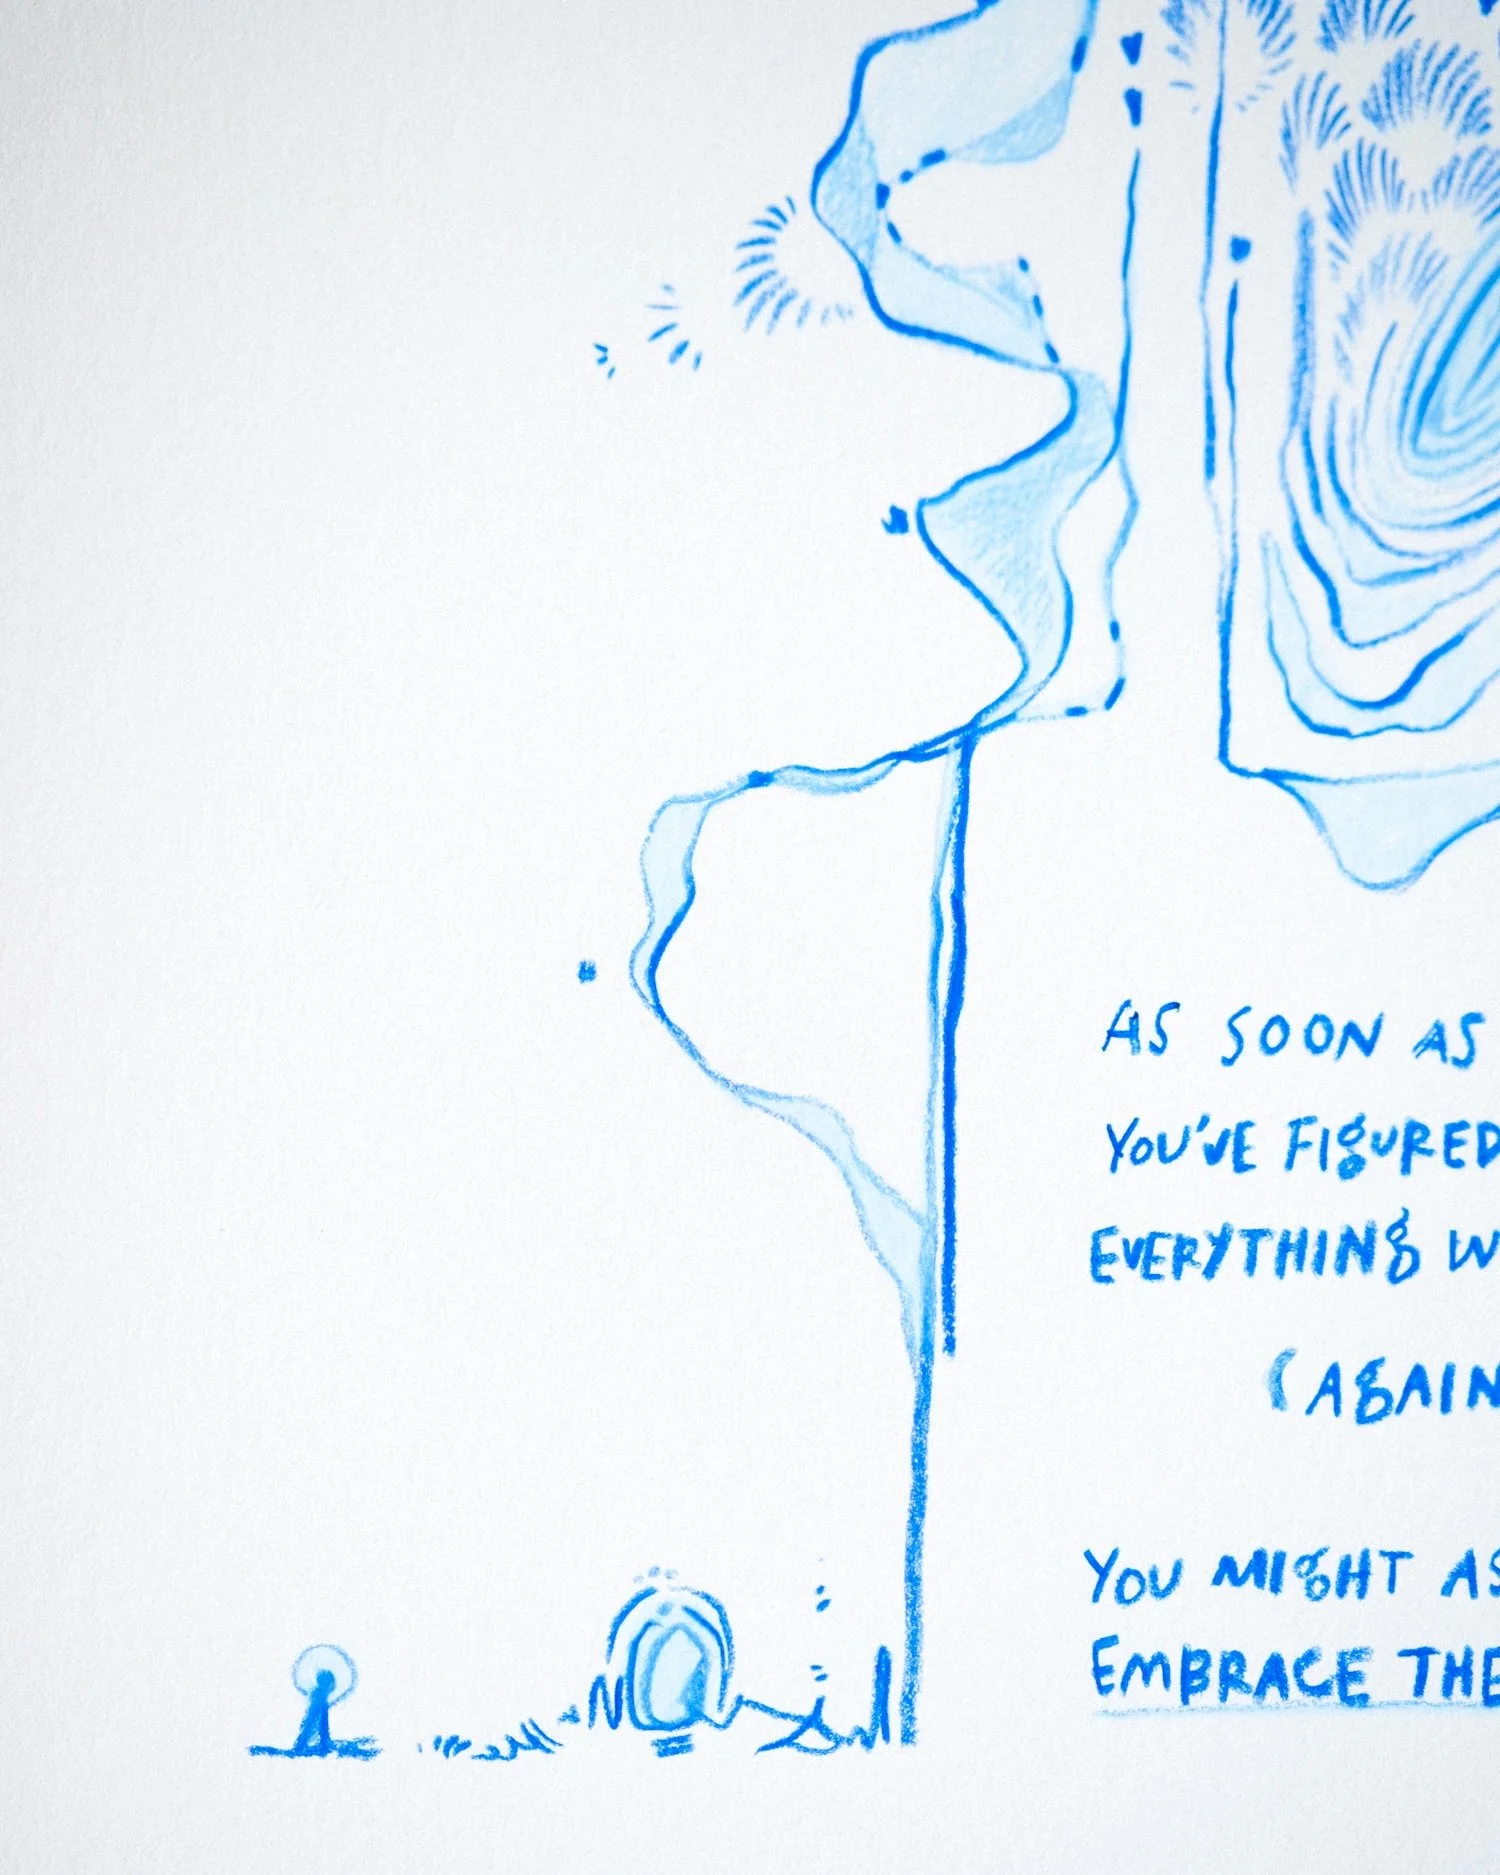 AS SOON AS
YOU'VE FIGURED
EVERYTHING W
(AGAIN
YOU MIGHT AS
EMBRACE THE